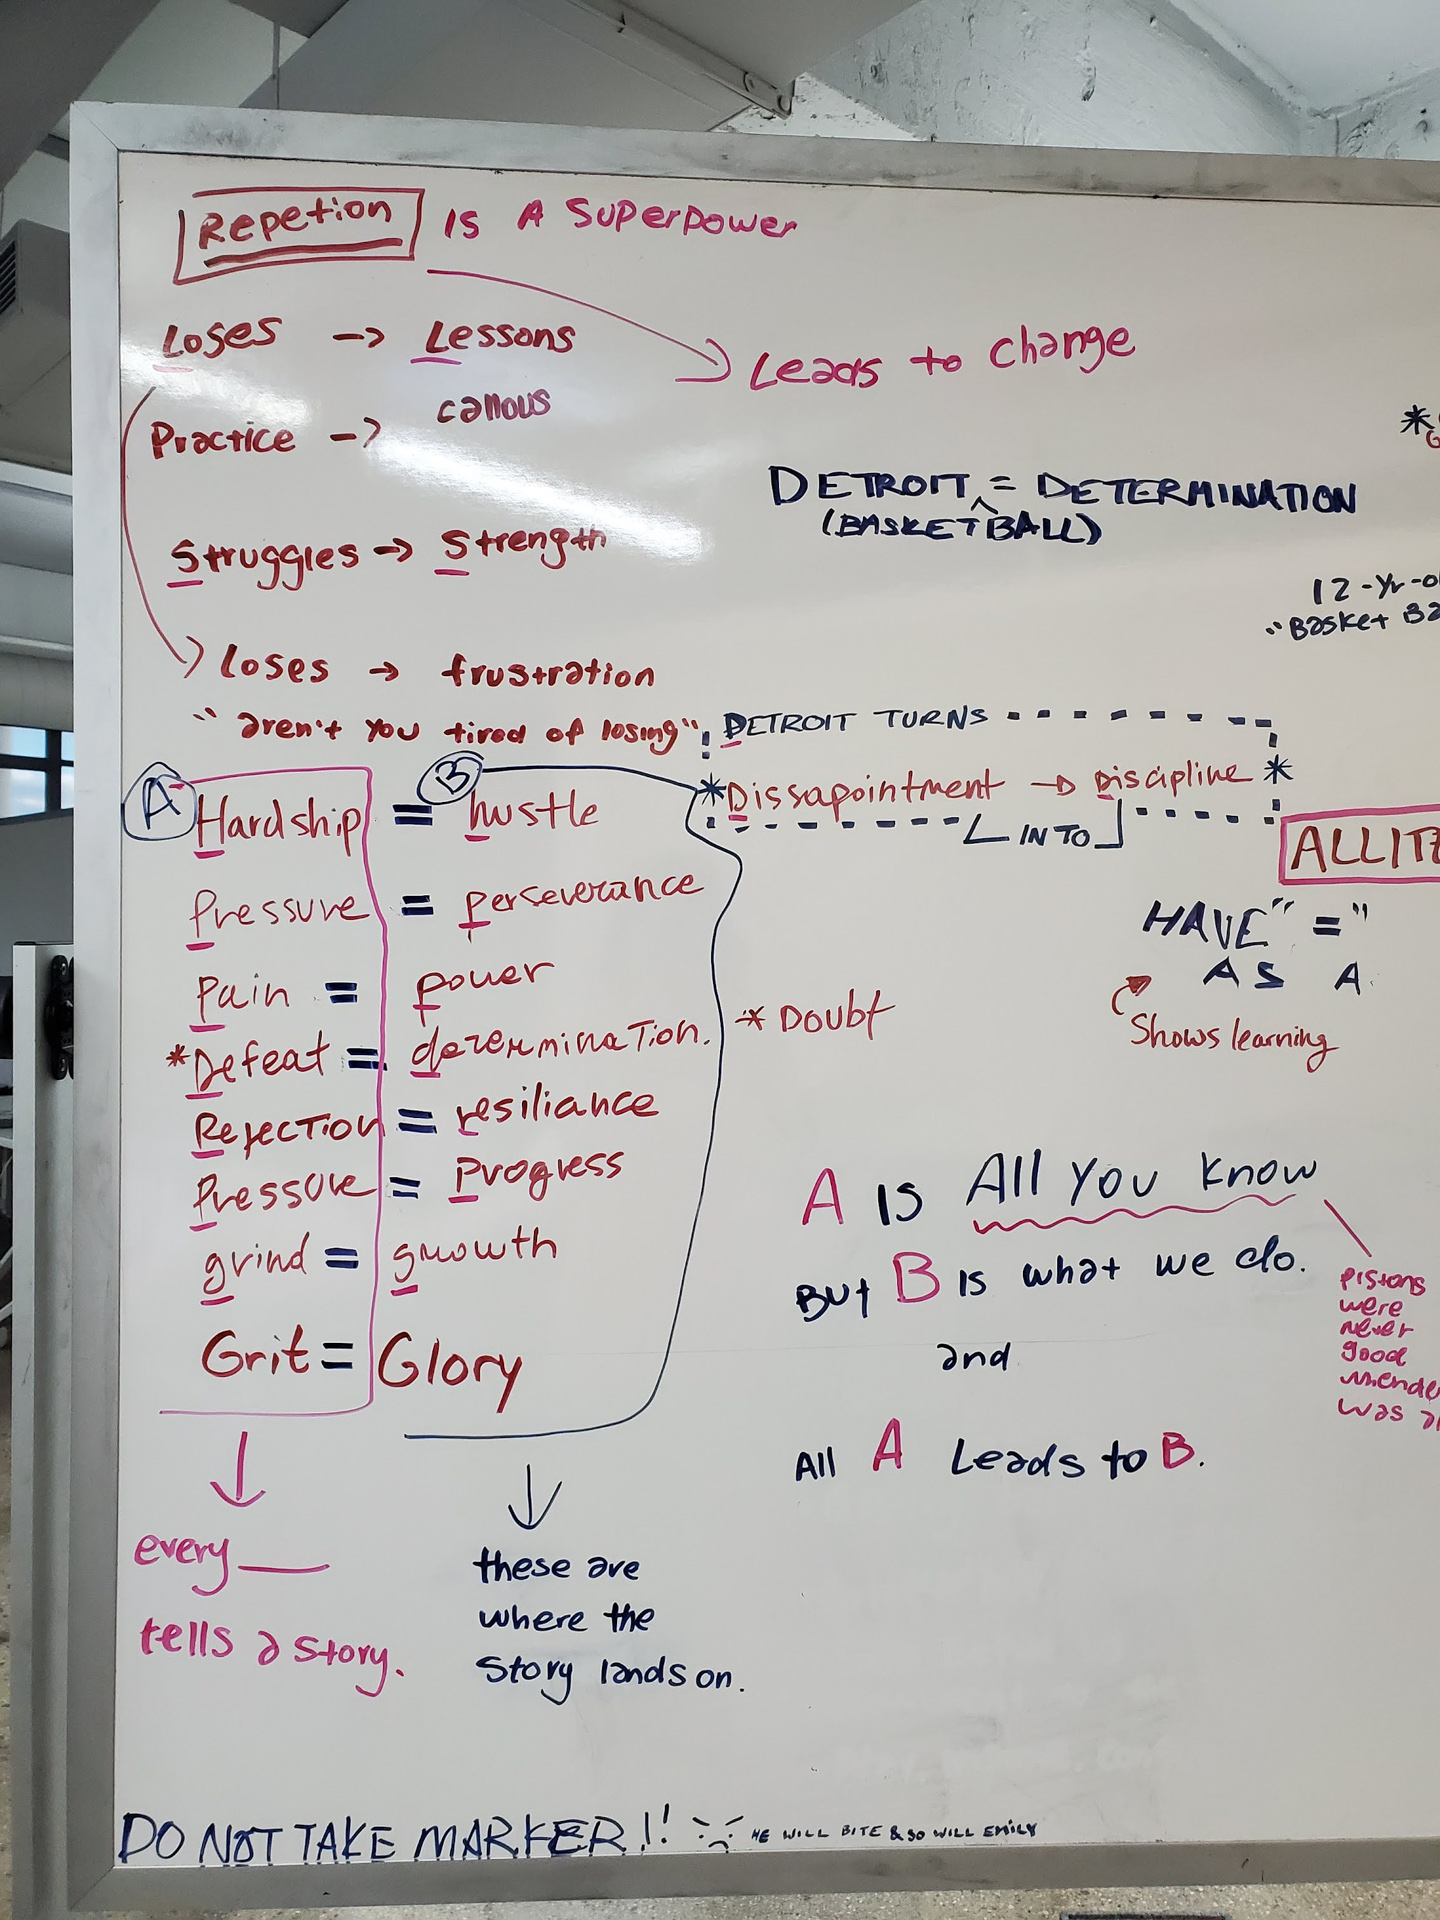 Repetion is A Superpower
Loses -> Lessons
Leads to change
Practice -> callous
DETROIT = DETERMINATION
(BASKETBALL)
Struggles -> Strength
12-yr-o
"Basket Ba
Loses -> frustration
"aren't you tired of losing"
DETROIT TURNS
*Dissapointment -> Discipline *
INTO
A B
Hardship = hustle
ALLITE
Pressure = perseverance
HAVE "="
AS A
Shows learning
Pain = power
*Defeat = determination. * Doubt
Rejection = resiliance
Pressure = Progress
grind = growth
Grit = Glory
A is All you know
But B is what we do.
and
All A Leads to B.
pistons
were
never
good
was
every ____
tells a story.
these are
where the
story lands on.
DO NOT TAKE MARKER!! HE WILL BITE & SO WILL EMILY